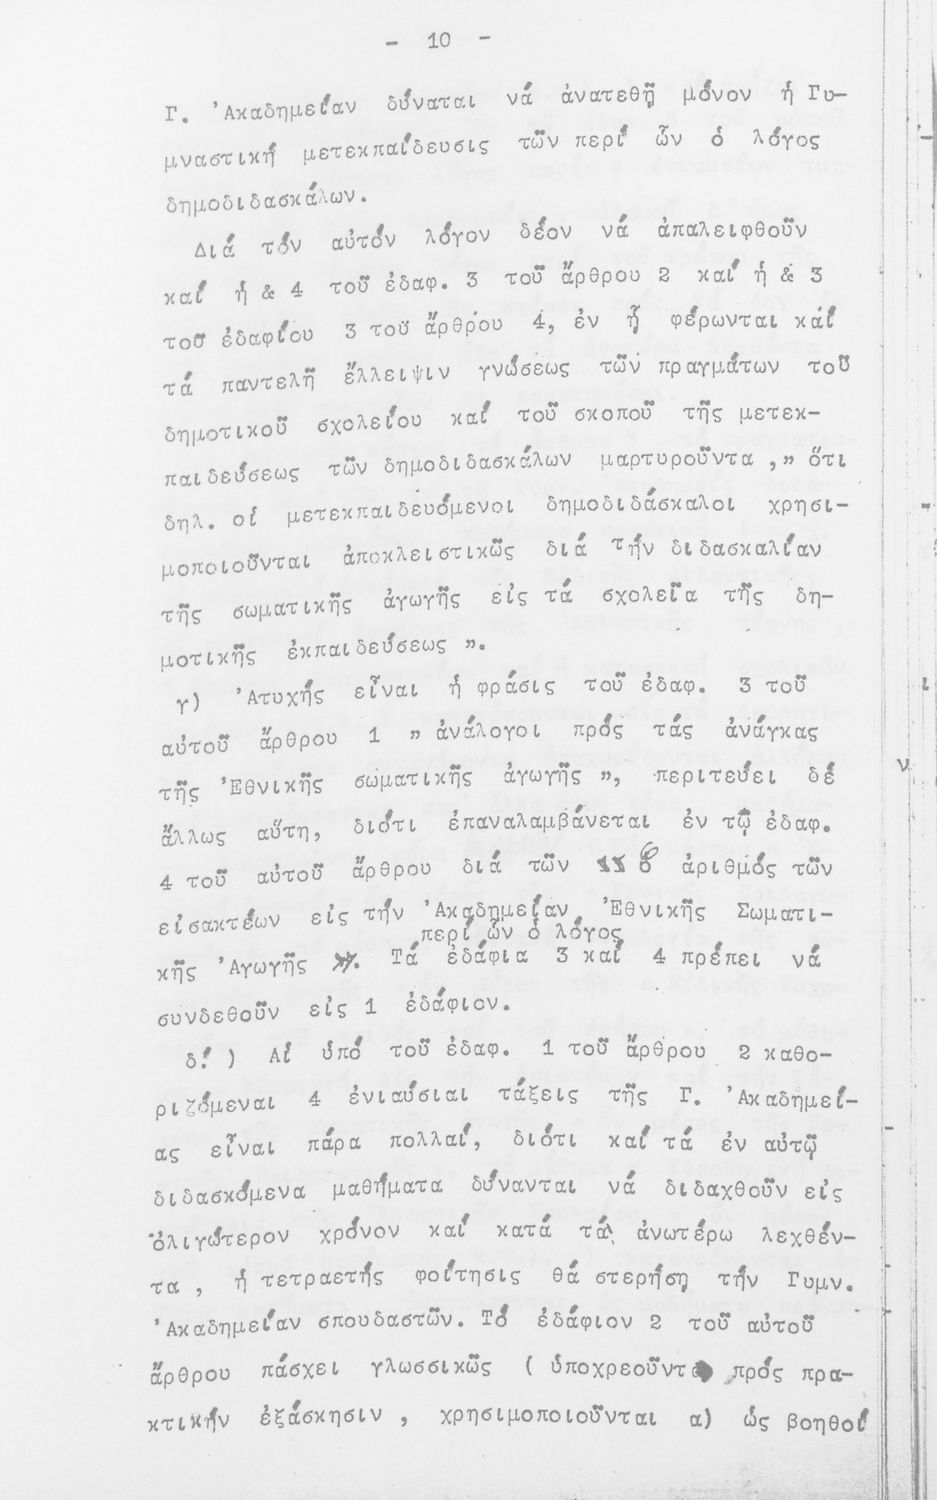 - 10 -
Γ. Ἀκαδημείαν δύναται νά ἀνατεθῇ μόνον ἡ Γυ-
μναστική μετεκπαίδευσις τῶν περί ὧν ὁ λόγος
δημοδιδασκάλων.
Διά τόν αὐτόν λόγον δέον νά ἀπαλειφθοῦν
καί ἡ & 4 τοῦ ἐδαφ. 3 τοῦ ἄρθρου 2 καί ἡ & 3
τοῦ ἐδαφίου 3 τοῦ ἄρθρου 4, ἐν ᾗ φέρωνται καί
τά παντελῆ ἔλλειψιν γνώσεως τῶν πραγμάτων τοῦ
δημοτικοῦ σχολείου καί τοῦ σκοποῦ τῆς μετεκ-
παιδεύσεως τῶν δημοδιδασκάλων μαρτυροῦντα ,„ ὅτι
δηλ. οἱ μετεκπαιδευόμενοι δημοδιδάσκαλοι χρησι-
μοποιοῦνται ἀποκλειστικῶς διά τήν διδασκαλίαν
τῆς σωματικῆς ἀγωγῆς εἰς τά σχολεῖα τῆς δη-
μοτικῆς ἐκπαιδεύσεως „.
γ) Ἀτυχής εἶναι ἡ φράσις τοῦ ἐδαφ. 3 τοῦ
αὐτοῦ ἄρθρου 1 „ ἀνάλογοι πρός τάς ἀνάγκας
τῆς Ἐθνικῆς σωματικῆς ἀγωγῆς „, περιτεύει δέ
ἄλλως αὕτη, διότι ἐπαναλαμβάνεται ἐν τῷ ἐδαφ.
4 τοῦ αὐτοῦ ἄρθρου διά τῶν ὁ ἀριθμός τῶν
εἰσακτέων εἰς τήν Ἀκαδημείαν Ἐθνικῆς Σωματι-
περί ὧν ὁ λόγος
κῆς Ἀγωγῆς „. Τά ἐδάφια 3 καί 4 πρέπει νά
συνδεθοῦν εἰς 1 ἐδάφιον.
δ.) Αἱ ὑπό τοῦ ἐδαφ. 1 τοῦ ἄρθρου 2 καθο-
ριζόμεναι 4 ἐνιαύσιαι τάξεις τῆς Γ. Ἀκαδημεί-
ας εἶναι πάρα πολλαί, διότι καί τά ἐν αὐτῷ
διδασκόμενα μαθήματα δύνανται νά διδαχθοῦν εἰς
ὀλιγώτερον χρόνον καί κατά τά ἀνωτέρω λεχθέν-
τα , ἡ τετραετής φοίτησις θά στερήσῃ τήν Γυμν.
Ἀκαδημείαν σπουδαστῶν. Τό ἐδάφιον 2 τοῦ αὐτοῦ
ἄρθρου πάσχει γλωσσικῶς ( ὑποχρεοῦντα πρός πρα-
κτικήν ἐξάσκησιν , χρησιμοποιοῦνται α) ὡς βοηθοί